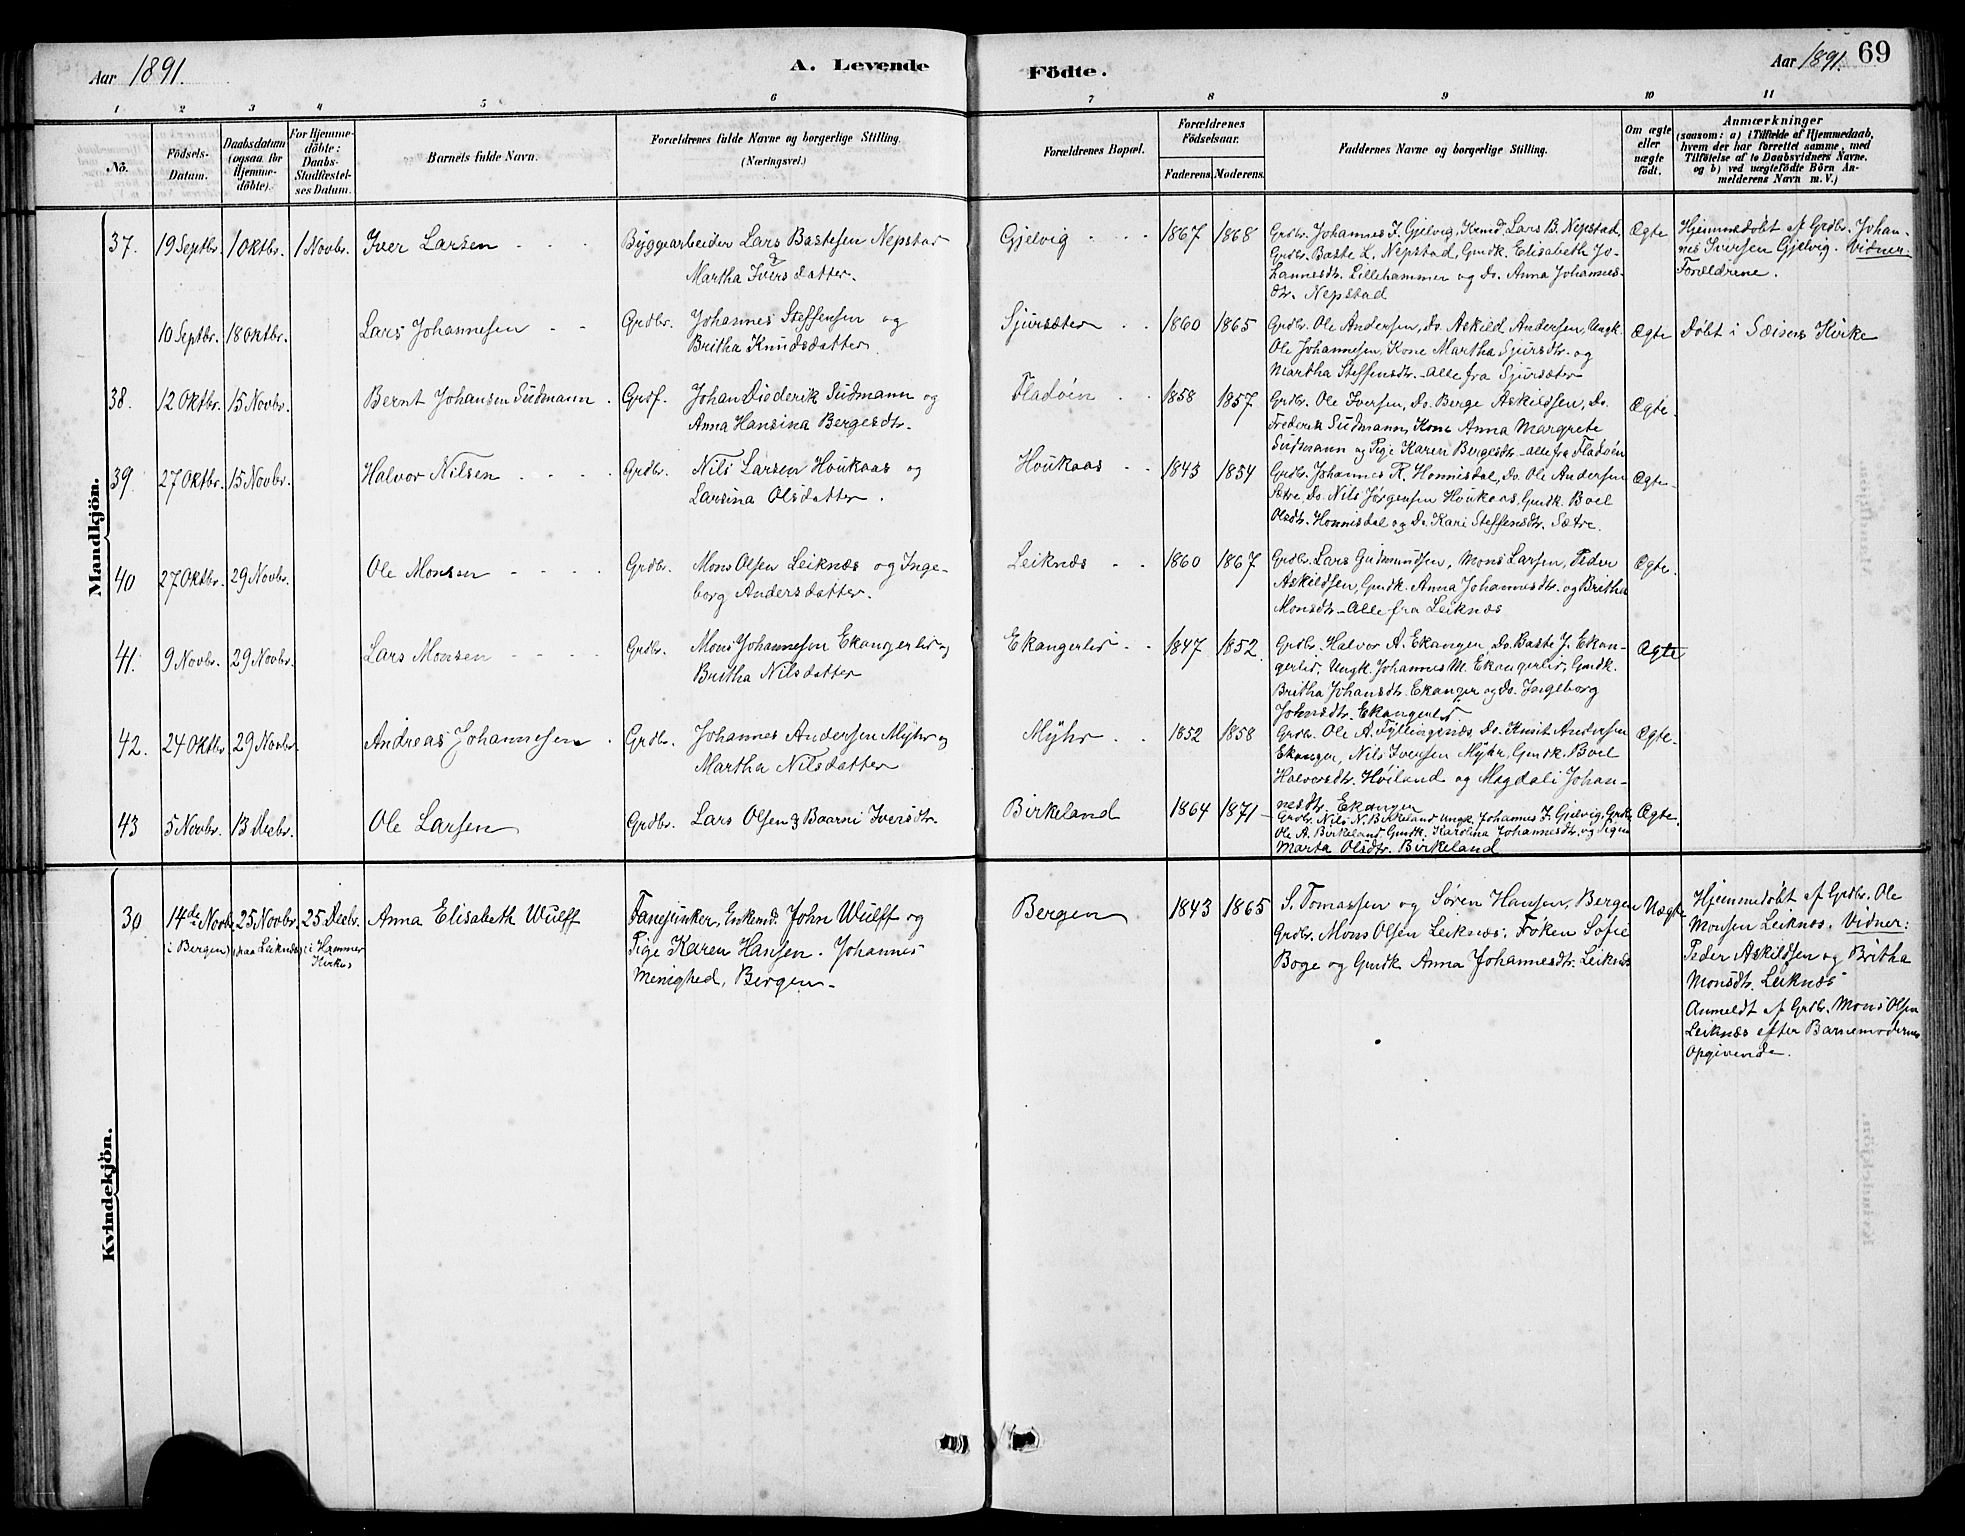 Aar 1891.
A. Levende
Födte.
Aar 1891.
69
1 2 3 4 5 6 7 8 9 10 11
No.
Födsels-
Datum.
Daabsdatum
(ogsaa for
Hjemme-
döbte).
For Hjemme-
döbte:
Daabs-
Stadfæstel-
ses Datum.
Barnets fulde Navn.
Forældrenes fulde Navne og borgerlige Stilling.
(Næringsvei.)
Forældrenes Bopæl.
Forældrenes
Födselsaar.
Faderens. Moderens.
Faddernes Navne og borgerlige Stilling.
Om ægte
eller
uægte
födt.
Anmærkninger
(saasom: a) i Tilfælde af Hjemmedaab,
hvem der har forrettet samme, med
Tilföielse af to Daabsvidners Navne,
og b) ved uægtefödte Börn An-
melderens Navn m. V.)
Mandkjön.
37. 19 Septbr. 1 Oktbr. 1 Novbr. Iver Larsen
Byggearbeider Lars Bastesen Nepstad
&
Martha Iversdatter.
Gjelvig 1867 1868
Grdbr. Johannes I. Gjelvig, Kmd. Lars B. Nepstad,
Grdbr. Baste L. Nepstad, Gmdk. Elisabeth Jo-
hannesdtr. Lillehammer og Do. Anna Johannes-
dtr. Nepstad
Ægte
Hjemmedøbt af Grdbr. Johan-
nes Iversen Gjelvig. Vidner:
Forældrene.
10 Septbr. 18 Oktbr. Lars Johannesen
Grdbr. Johannes Steffensen og
Britha Knudsdatter.
Sjursæter 1860 1865
Grdbr. Ole Andersen, Do. Askild Andersen, Ungk.
Ole Johannesen, Kone Martha Sjursdtr. og
Martha Steffensdtr. - alle fra Sjursæter
Ægte
Døbt i Sæims Kirke
38. 12 Oktbr. 15 Novbr. Bernt Johansen Sudmann.
Grdf. Johan Diederik Sudmann og
Anna Hansina Bergesdtr.
Fladøen 1858 1857
Grdbr. Ole Iversen, Do. Berge Askildsen, Do.
Frederik Sudmann, Kone Anna Margrete
Sudmann og Pige Karen Bergesdtr - alle fra Fladøen
Ægte.
39. 27 Oktbr. 15 Novbr. Halvor Nilsen
Grdbr. Nils Larsen Houkaas og
Larsina Olsdatter.
Houkaas 1843 1854
Grdbr. Johannes R. Honnisdal, Do. Ole Andersen
Sætre, Do. Nils Jørgensen Houkaas, Gmdk. Boel
Olsdtr. Honnisdal og Do. Kari Steffensdtr. Sætre.
Ægte
40 27 Oktbr. 29 Novbr. Ole Monsen
Grdbr. Mons Olsen Leiknæs og Inge-
borg Andersdatter.
Leiknæs 1860 1867
Grdbr. Lars Gudmundsen, Mons Larsen, Peder
Askildsen, Gmdk. Anna Johannesdtr. og Britha
Monsdtr. - Alle fra Leiknæs
Ægte.
41. 9 Novbr. 29 Novbr. Lars Monsen
Grdbr. Mons Johannesen Ekangerlid og
Britha Nilsdatter
Ekangerlid 1847 1852.
Grdbr. Halvor A. Ekanger, Do. Baste J. Ekan-
gerlid, Ungk. Johannes M. Ekangerlid, Gmdk.
Britha Johansdtr. Ekanger og Do. Ingeborg
Johnsdtr. Ekangerlid
Ægte
42. 24 Oktbr 29 Novbr. Andreas Johannesen
Grdbr. Johannes Andersen Myhr og
Martha Nilsdatter
Myhr 1852 1858
Grdbr. Ole A. Fyllingsnæs, Do. Knut Andersen
Ekanger, Nils Iversen Myhr, Gmdk. Boel
Halvorsdtr. Høiland og Magdali Johan-
nesdtr. Ekanger
Ægte
43 5 Novbr. 13 Decbr. Ole Larsen
Grdbr. Lars Olsen & Baarni Iversdtr.
Birkeland 1864 1871
Grdbr. Nils N. Birkeland, Ungk. Johannes I. Gjelvig, Grdbr.
Ole A. Birkeland, Gmdk. Karolina Johannesdtr. og Pigen
Marta Olsdtr. Birkeland
Ægte.
Kvindekjön.
30 14de Novbr. 25 Novbr. 25 Decbr. Anna Elisabeth Wulff
i Bergen paa Leiknæs i Hammer
Kirke
Fanejunker, Enkmd. John Wulff og
Pige Karen Hansen. Johannes
Menighed, Bergen.
Bergen 1843 1865
S. Tomassen og Søren Hansen, Bergen
Grdbr. Mons Olsen Leiknæs. Frøken Sofie
Boge og Gmdk Anna Johannesdtr. Leiknæs
Uægte
Hjemmedøbt af Grdbr. Ole
Monsen Leiknæs. Vidner:
Peder Askildsen og Britha
Monsdtr. Leiknæs
Anmeldt af Grdbr. Mons Olsen
Leiknæs efter Barnemoderens
Opgivende.